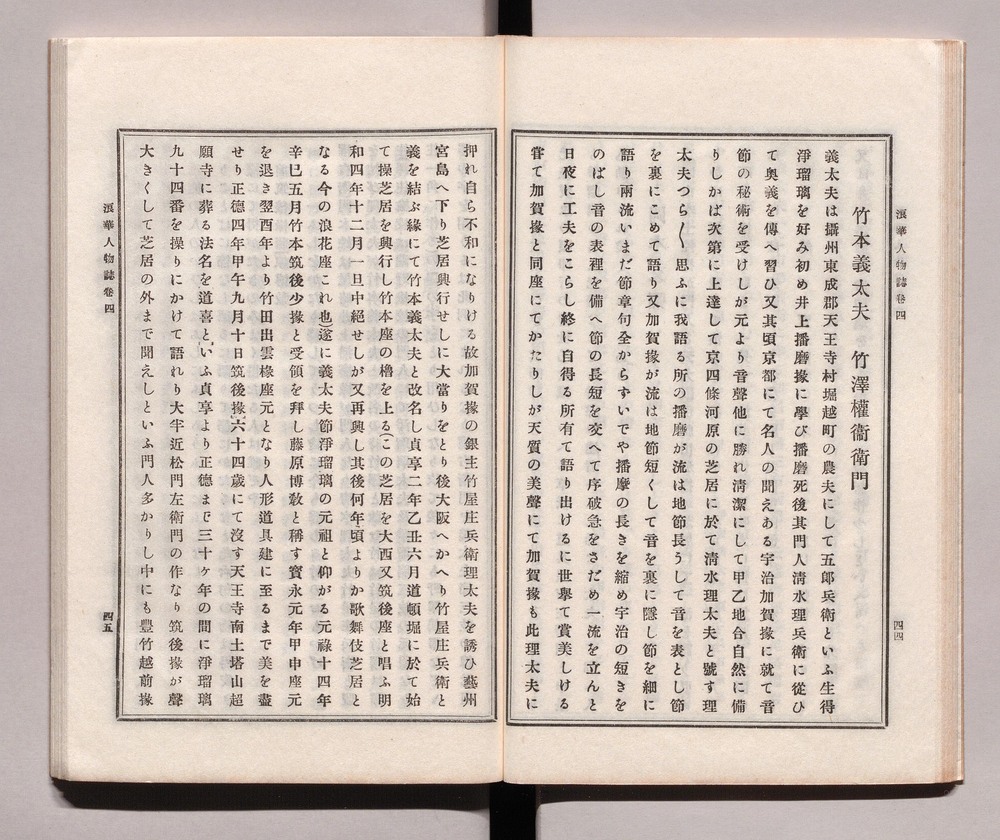 浪華人物誌卷四
四四
竹本義太夫　竹澤權衞衛門
義太夫は攝州東成郡天王寺村堀越町の農夫にして五郎兵衞といふ生得
淨瑠璃を好み初め井上播磨掾に學び播磨死後其門人淸水理兵衞に從ひ
て奥義を傳へ習ひ又其頃京都にて名人の聞えある宇治加賀掾に就て音
節の秘術を受けしが元より音聲他に勝れ淸潔にして甲乙地合自然に備
りしかば次第に上達して京四條河原の芝居に於て淸水理太夫と號す理
太夫つら〱思ふに我語る所の播磨が流は地節長うして音を表とし節
を裏にこめて語り又加賀掾が流は地節短くして音を裏に隱し節を細に
語り兩流いまだ節章句全からずいでや播摩の長きを縮め宇治の短きを
のばし音の表裡を備へ節の長短を交へて序破急をさだめ一流を立んと
日夜に工夫をこらし終に自得る所有て語り出けるに世擧て賞美しける
甞て加賀掾と同座にてかたりしが天質の美聲にて加賀掾も此理太夫に
押れ自ら不和になりける故加賀掾の銀主竹屋庄兵衞理太夫を誘ひ藝州
宮島へ下り芝居興行せしに大當りをとり後大阪へかへり竹屋庄兵衞と
義を結ぶ緣にて竹本義太夫と改名し貞享二年乙丑六月道頓堀に於て始
て操芝居を興行し竹本座の櫓を上る(この芝居を大西又筑後座と唱ふ明
和四年十二月一旦中絕せしが又再興し其後何年頃よりか歌舞伎芝居と
なる今の浪花座これ也)遂に義太夫節淨瑠璃の元祖と仰がる元祿十四年
辛巳五月竹本筑後少掾と受領を拜し藤原博敎と稱す寶永元年甲申座元
を退き翌酉年より竹田出雲椽座元となり人形道具建に至るまで美を盡
せり正德四年甲午九月十日筑後掾六十四歲にて沒す天王寺南土塔山超
願寺に葬る法名を道喜といふ貞享より正德まで三十ケ年の間に淨瑠璃
九十四番を操りにかけて語れり大半近松門左衞門の作なり筑後掾が聲
大きくして芝居の外まで聞えしといふ門人多かりし中にも豐竹越前掾
浪華人物誌卷四
四五